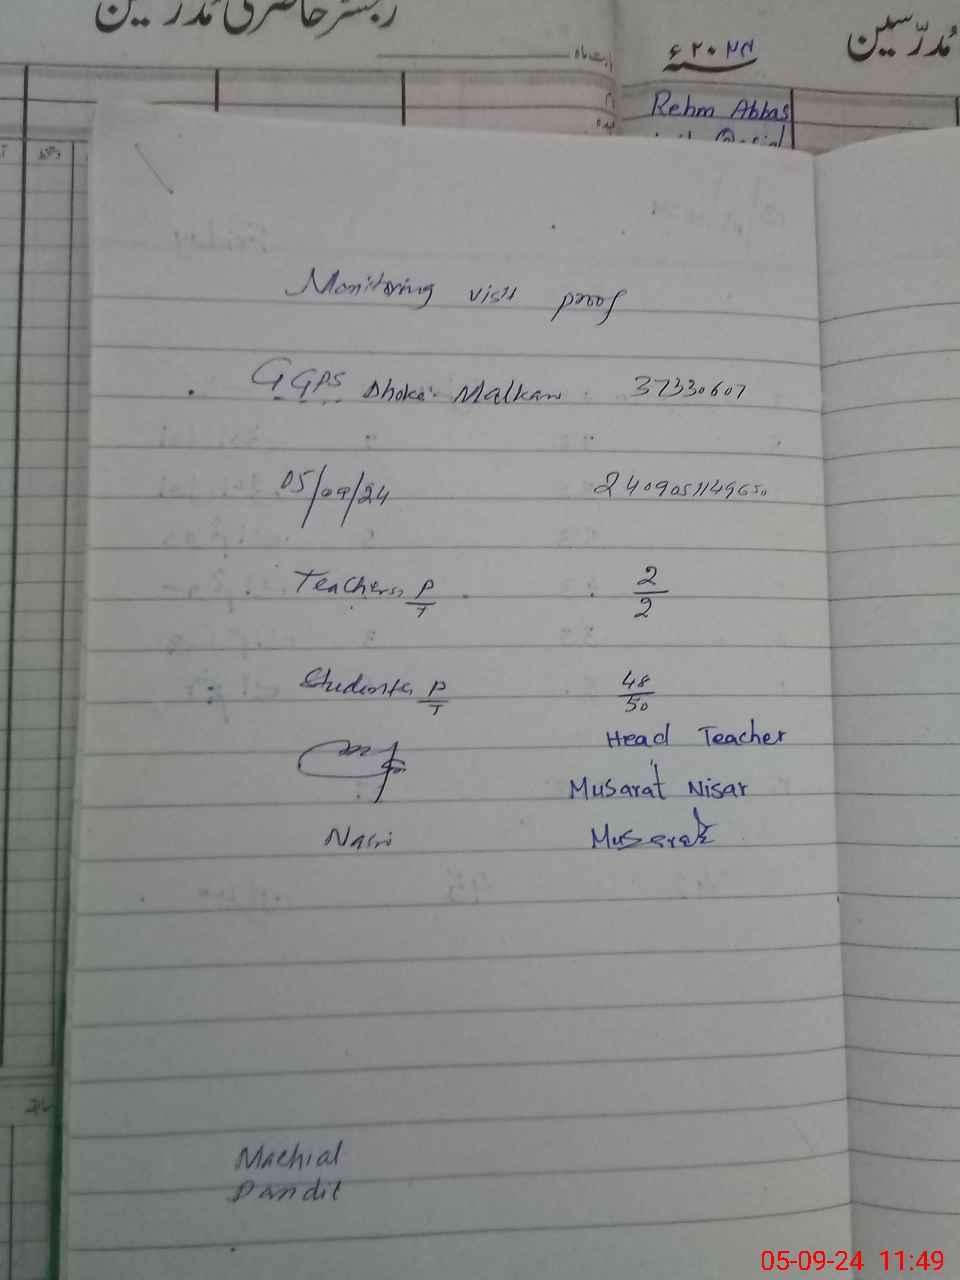 رجسٹر حاضری مُدرّسین
بابت ماہ
۲۰۲۴ء
مُدرّسین
Rehm Abbas
Monitoring visit proof
GGPS Dhoke Malkan 37330607
05/09/24 2409051149650
Teachers P/T 2/2
Students P/T 48/50
Head Teacher
Musarat Nisar
Nasri Musarat
Machial
Pandit
05-09-24 11:49